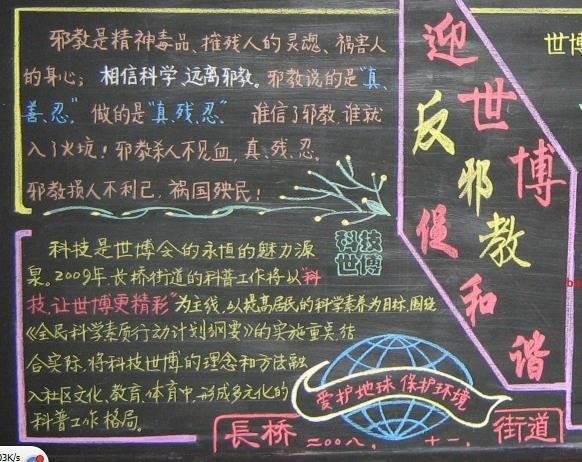 邪教是精神毒品、摧残人的灵魂、祸害人
的身心；相信科学、远离邪教。邪教说的是“真、
善、忍”做的是“真、残、忍”谁信了邪教，谁就
入了火坑！邪教杀人不见血，真、残、忍。
邪教损人不利己，祸国殃民！
科技
世博
科技是世博会的永恒的魅力源
泉。2009年，长桥街道的科普工作将以“科
技，让世博更精彩”为主线，以提高居民的科学素养为目标，围绕
《全民科学素质行动计划纲要》的实施重点，结
合实际，将科技世博的理念和方法融
入社区文化、教育、体育中，形成多元化的
科普工作格局。
爱护地球 保护环境
長桥 二00八，十一， 街道
迎世博
反邪教
促和谐
世博
03K/s